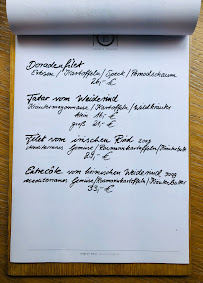 Doradenfilet
Erbsen / Kartoffeln / Speck / Pomodschaum
26,- €
Tatar vom Weiderind
Kräutermayonnaise / Kartoffeln / Waldkräuter
klein 16,- €
groß 21,- €
Filet vom irischen Rind 200g
mediterranes Gemüse / Rosmarinkartoffeln / Kräuterbutter
39,- €
Entrecôte vom heimischen Weiderind 300g
mediterranes Gemüse / Rosmarinkartoffeln / Kräuterbutter
33,- €